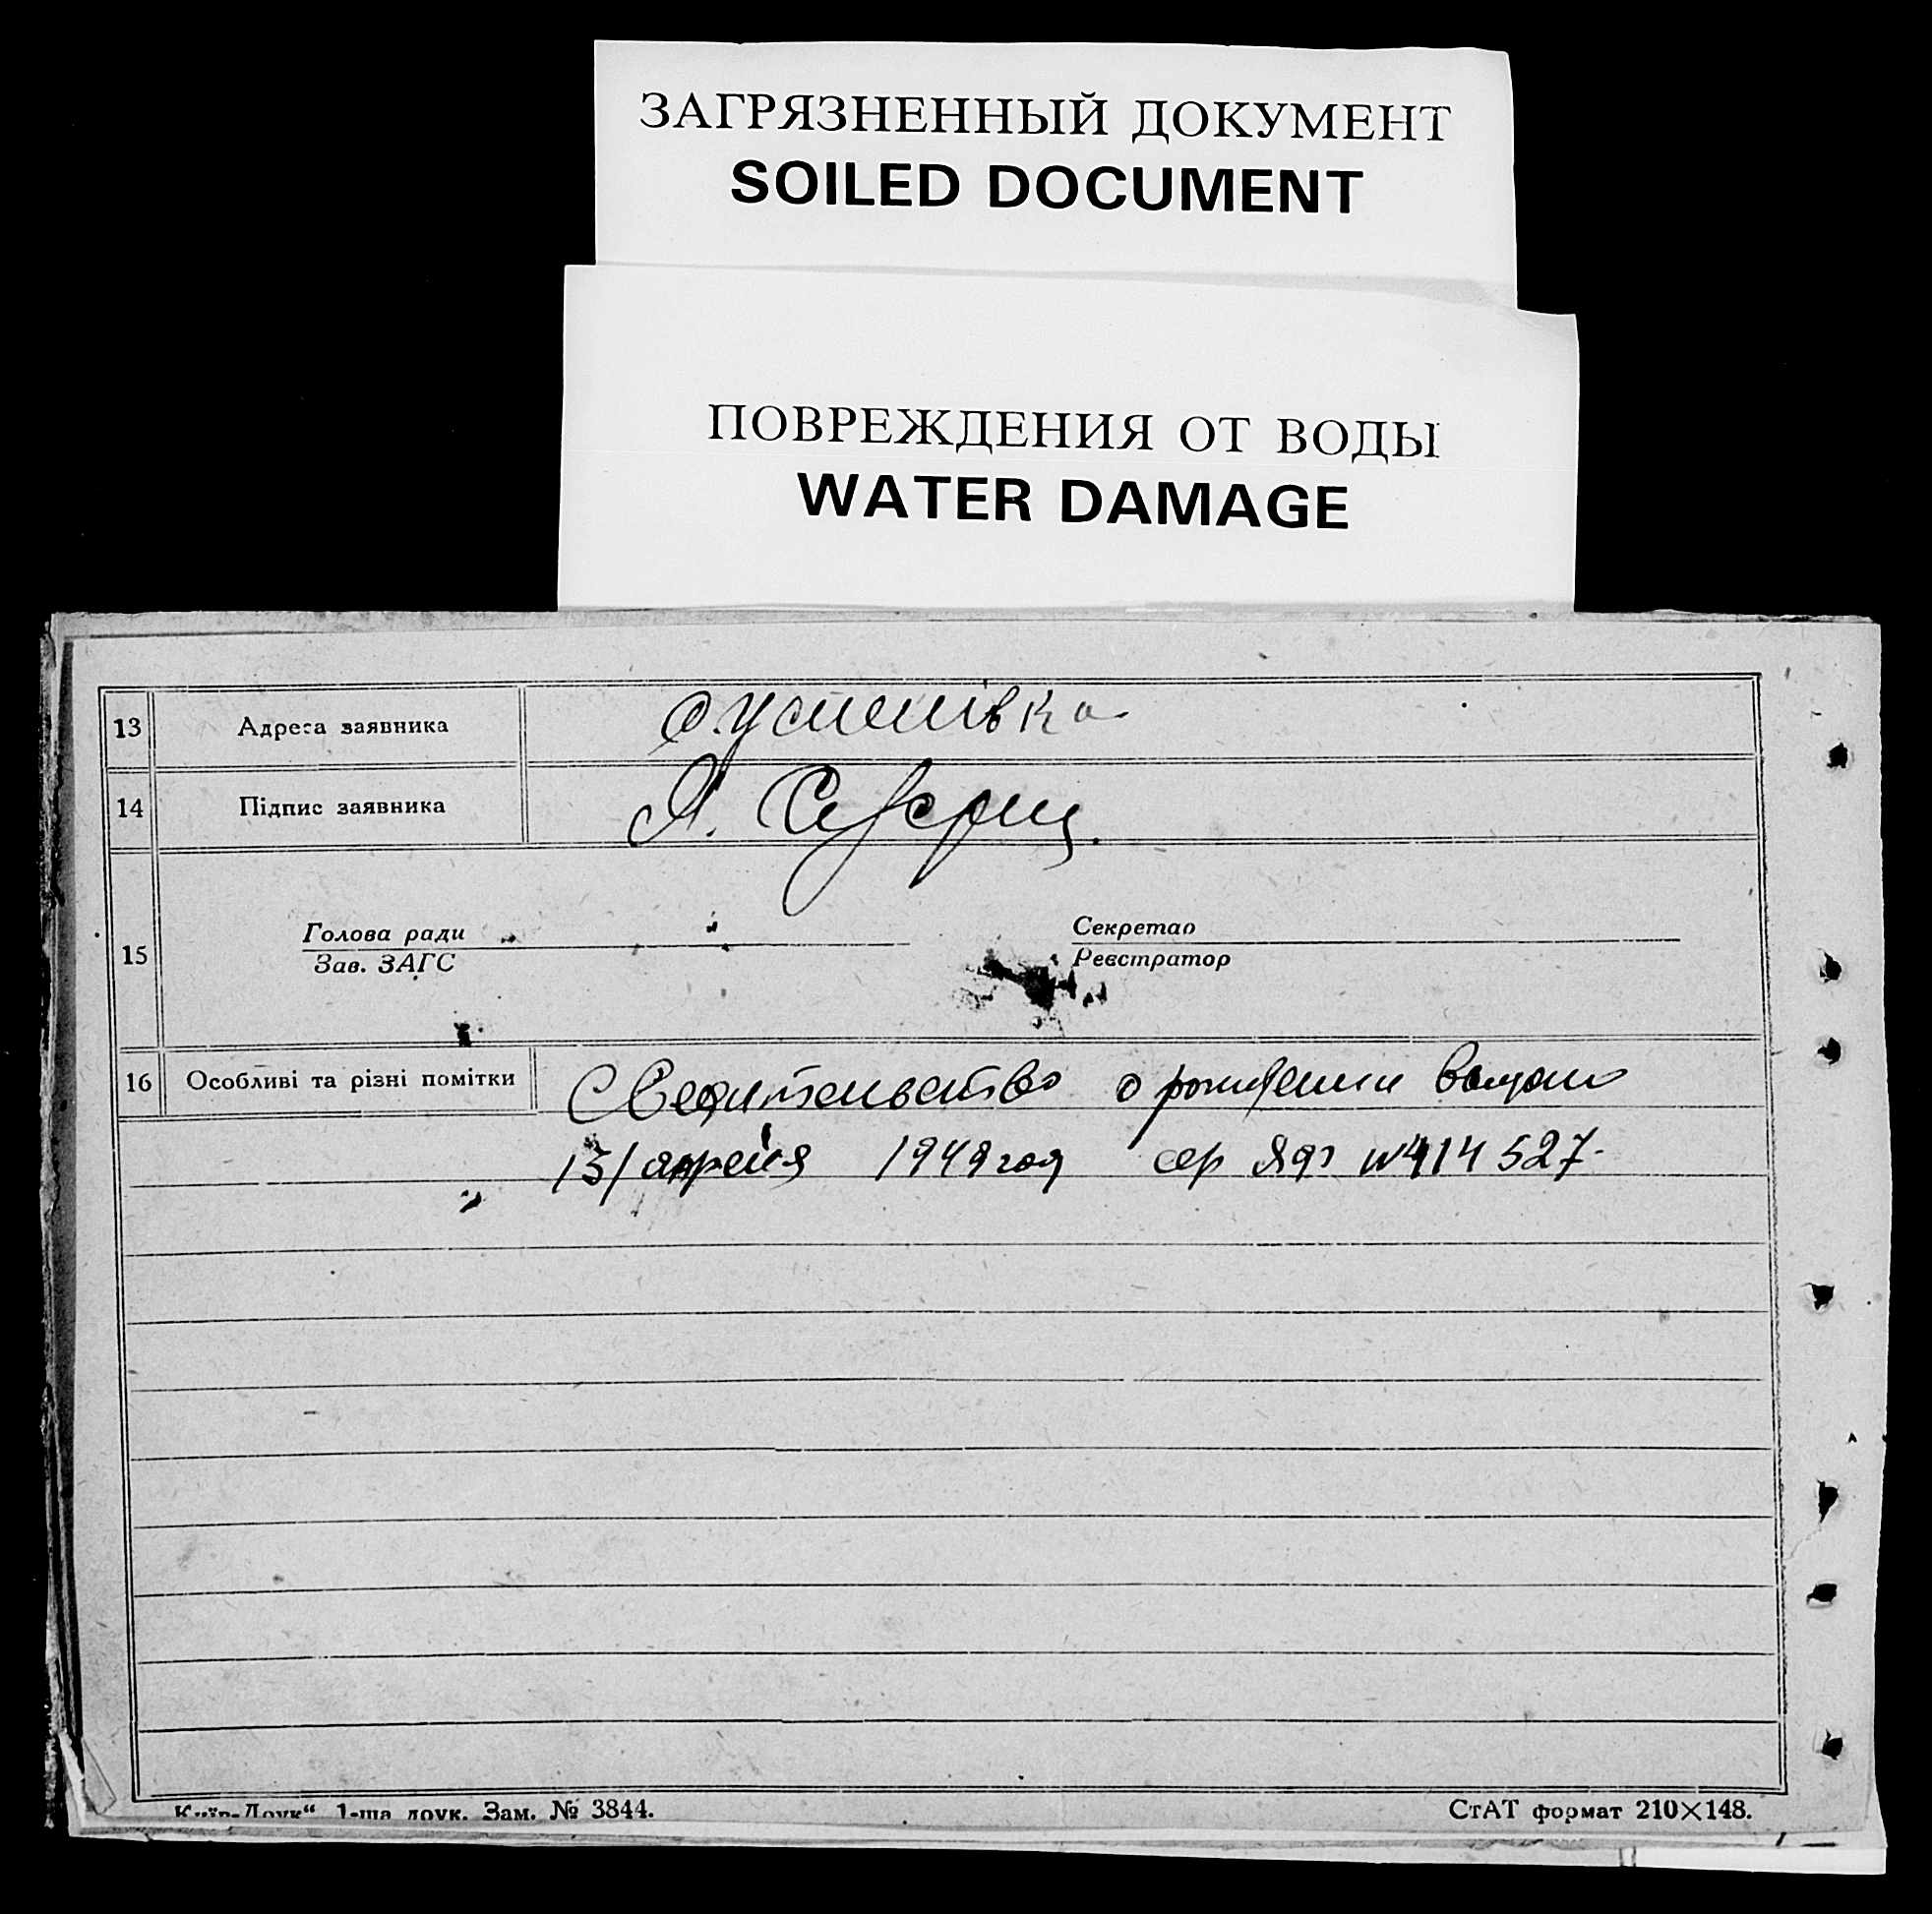 ЗАГРЯЗНЕННЫЙ ДОКУМЕНТ
SOILED DOCUMENT
ПОВРЕЖДЕНИЯ ОТ ВОДЫ
WATER DAMAGE
13 Адреса заявника
14 Підпис заявника
Голова ради Секретар
15
Зав. ЗАГС Реєстратор
16 Особливі та різні помітки Сведительство о рождении выдано
13/апреля 1949 год сер № 414527.
"Київ-Друк" 1-ша друк. Зам. № 3844. СтАТ формат 210×148.